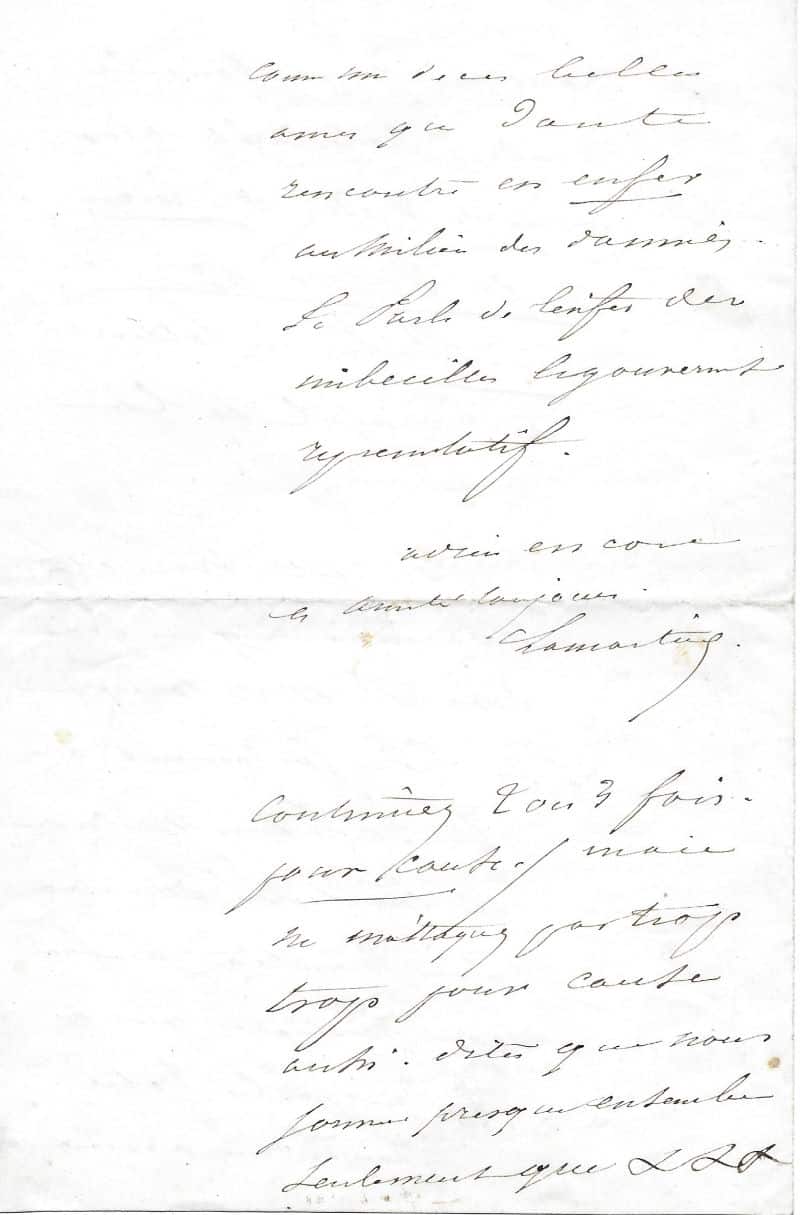 comme un de ces belles
ames que Dante
rencontre en enfer
au milieu des damnés.
Je Parle de l'enfer des
imbecilles le gouvernmt
representatif.
adieu encore
et amitié toujours.
Lamartine.
Continuez 2 ou 3 fois.
pour cause. / mais
ne m'attaquez pas trop
trop pour cause
aussi. dites que nous
sommes presque ensemble
seulement que XXX